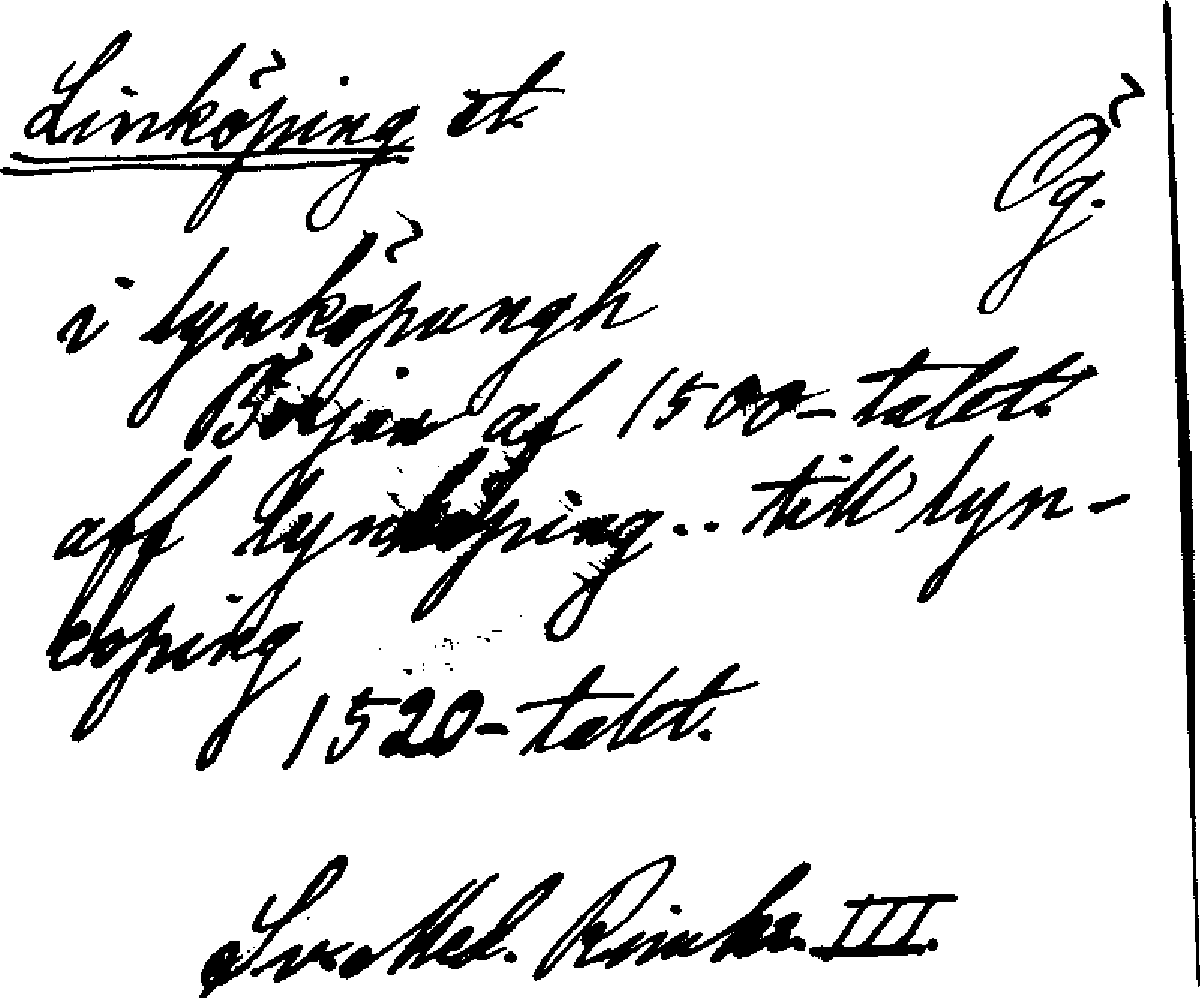 Linköping st.
Ög.
i lynköpungh
Början af 1500-talet.
aff lynköping .. till lyn-
köping
1520-talet.
Sv. Med. Rimkr. III.